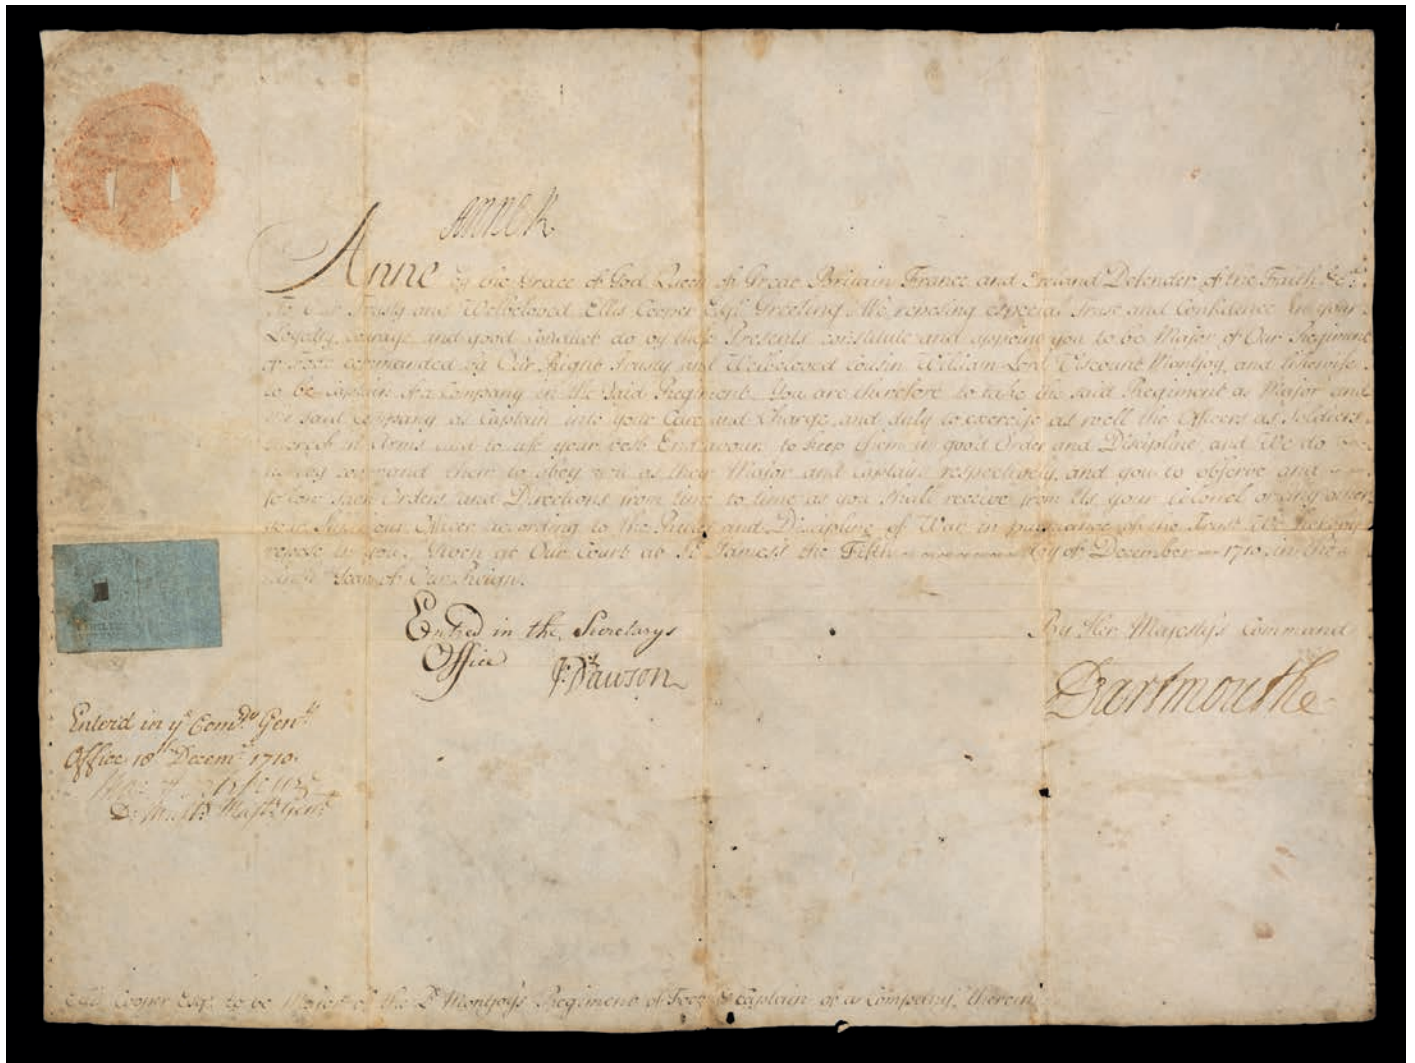 Anne R
Anne by the Grace of God Queen of Great Britain France and Ireland Defender of the Faith &c.
To Our Trusty and Welbeloved Ellis Cooper Esqr. Greeting. We reposing especial Trust and Confidence in your
Loyalty, Courage, and good Conduct do by these Presents constitute and appoint you to be Major of Our Regiment
of Foot commanded by Our Right Trusty and Welbeloved Cousin William Lord Viscount Montjoy, and likewise
to be Captain of a Company in the said Regiment. You are therefore to take the said Regiment as Major and
the said Company as Captain into your Care and Charge, and duly to exercise as well the Officers as Soldiers
thereof in Arms and to use your best Endeavours to keep them in good Order and Discipline and We do
hereby command them to obey you as their Major and Captain respectively, and you to observe and
follow such Orders and Directions from time to time as you shall receive from Us, your Colonel or any other
your Superiour Officer according to the Rules and Discipline of War in pursuance of the Trust We hereby
repose in you. Given at Our Court at St. James's the Fifth day of December 1710. in the
Year of Our Reign.
Entred in the Secretarys
Office
J: Dawson
By Her Majesty's Command
Dartmouth
Enterd in ye Comry. Genls
Office 18th Decemr. 1710.
Dr. Mustr. Mastr. Genl.
Ellis Cooper Esqr. to be Major of the Ld. Montjoy's Regiment of Foot & Captain of a Company therein